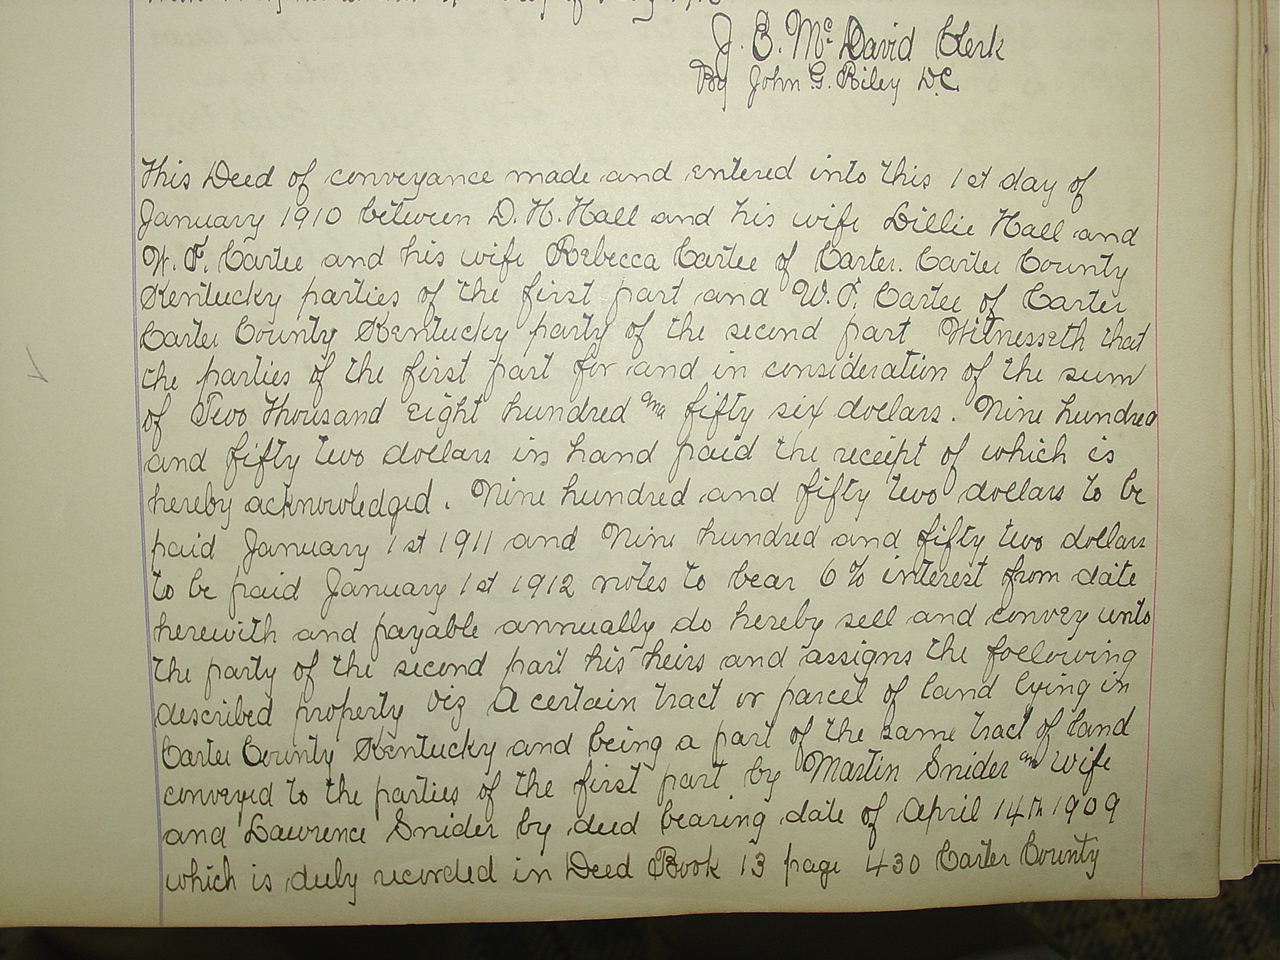 J. B. McDavid Clerk
By John G. Riley D.C.
This Deed of conveyance made and entered into this 1st day of
January 1910 between D. H. Hall and his wife Lillie Hall and
W. F. Cartee and his wife Rebecca Cartee of Carter. Carter County
Kentucky parties of the first part and W. F. Cartee of Carter
Carter County Kentucky party of the second part Witnesseth that
the parties of the first part for and in consideration of the sum
of Two thousand eight hundred and fifty six dollars. Nine hundred
and fifty two dollars in hand paid the receipt of which is
hereby acknowledged. Nine hundred and fifty two dollars to be
paid January 1st 1911 and Nine hundred and fifty two dollars
to be paid January 1st 1912 notes to bear 6% interest from date
herewith and payable annually do hereby sell and convey unto
the party of the second part his heirs and assigns the following
described property viz A certain tract or parcel of land lying in
Carter County Kentucky and being a part of the same tract of land
conveyed to the parties of the first part by Martin Snider and wife
and Lawrence Snider by deed bearing date of April 14th 1909
which is duly recorded in Deed Book 13 page 430 Carter County